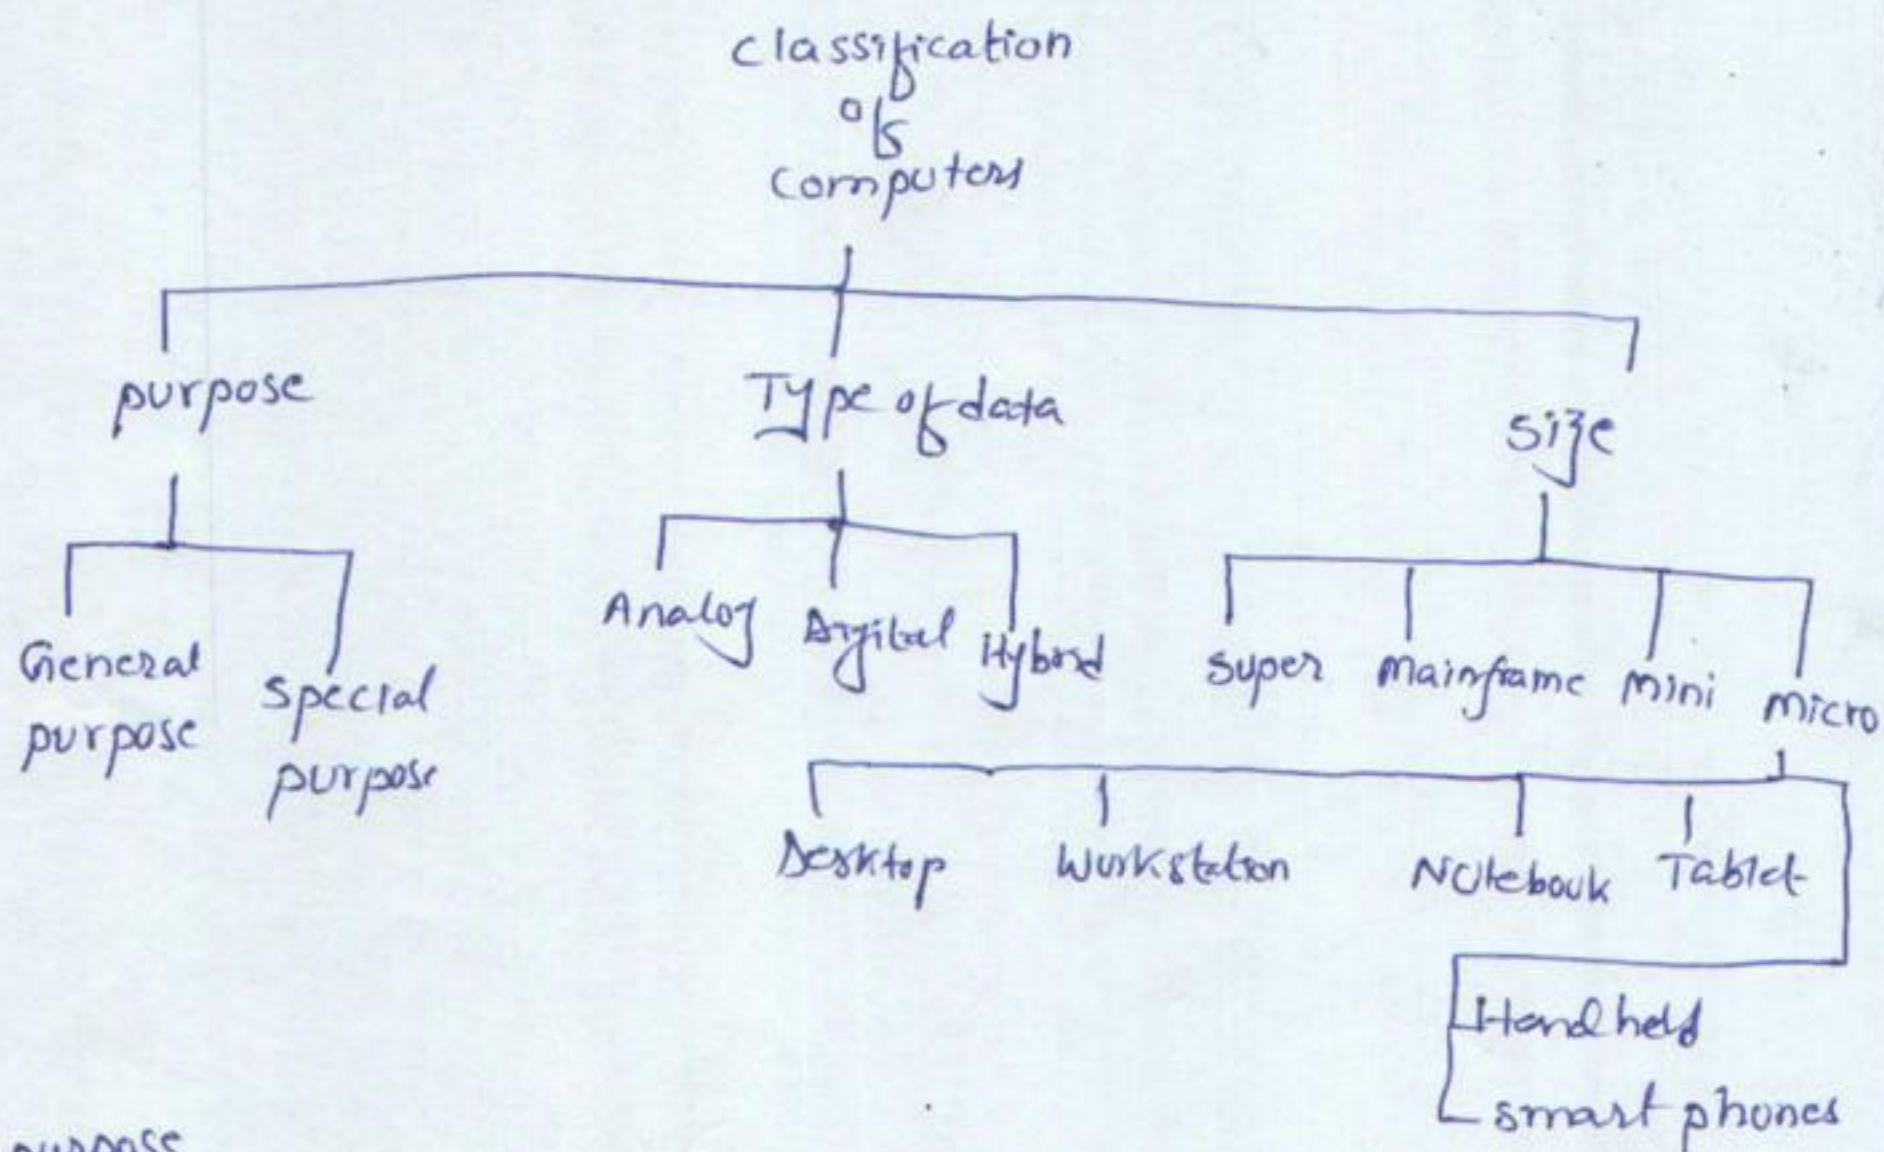 Classification
of
Computers
purpose
Type of data
Size
General
purpose
Special
purpose
Analog
Digital
Hybrid
Super
Mainframe
Mini
Micro
Desktop
Workstation
Notebook
Tablet
Hand held
smart phones
purpose